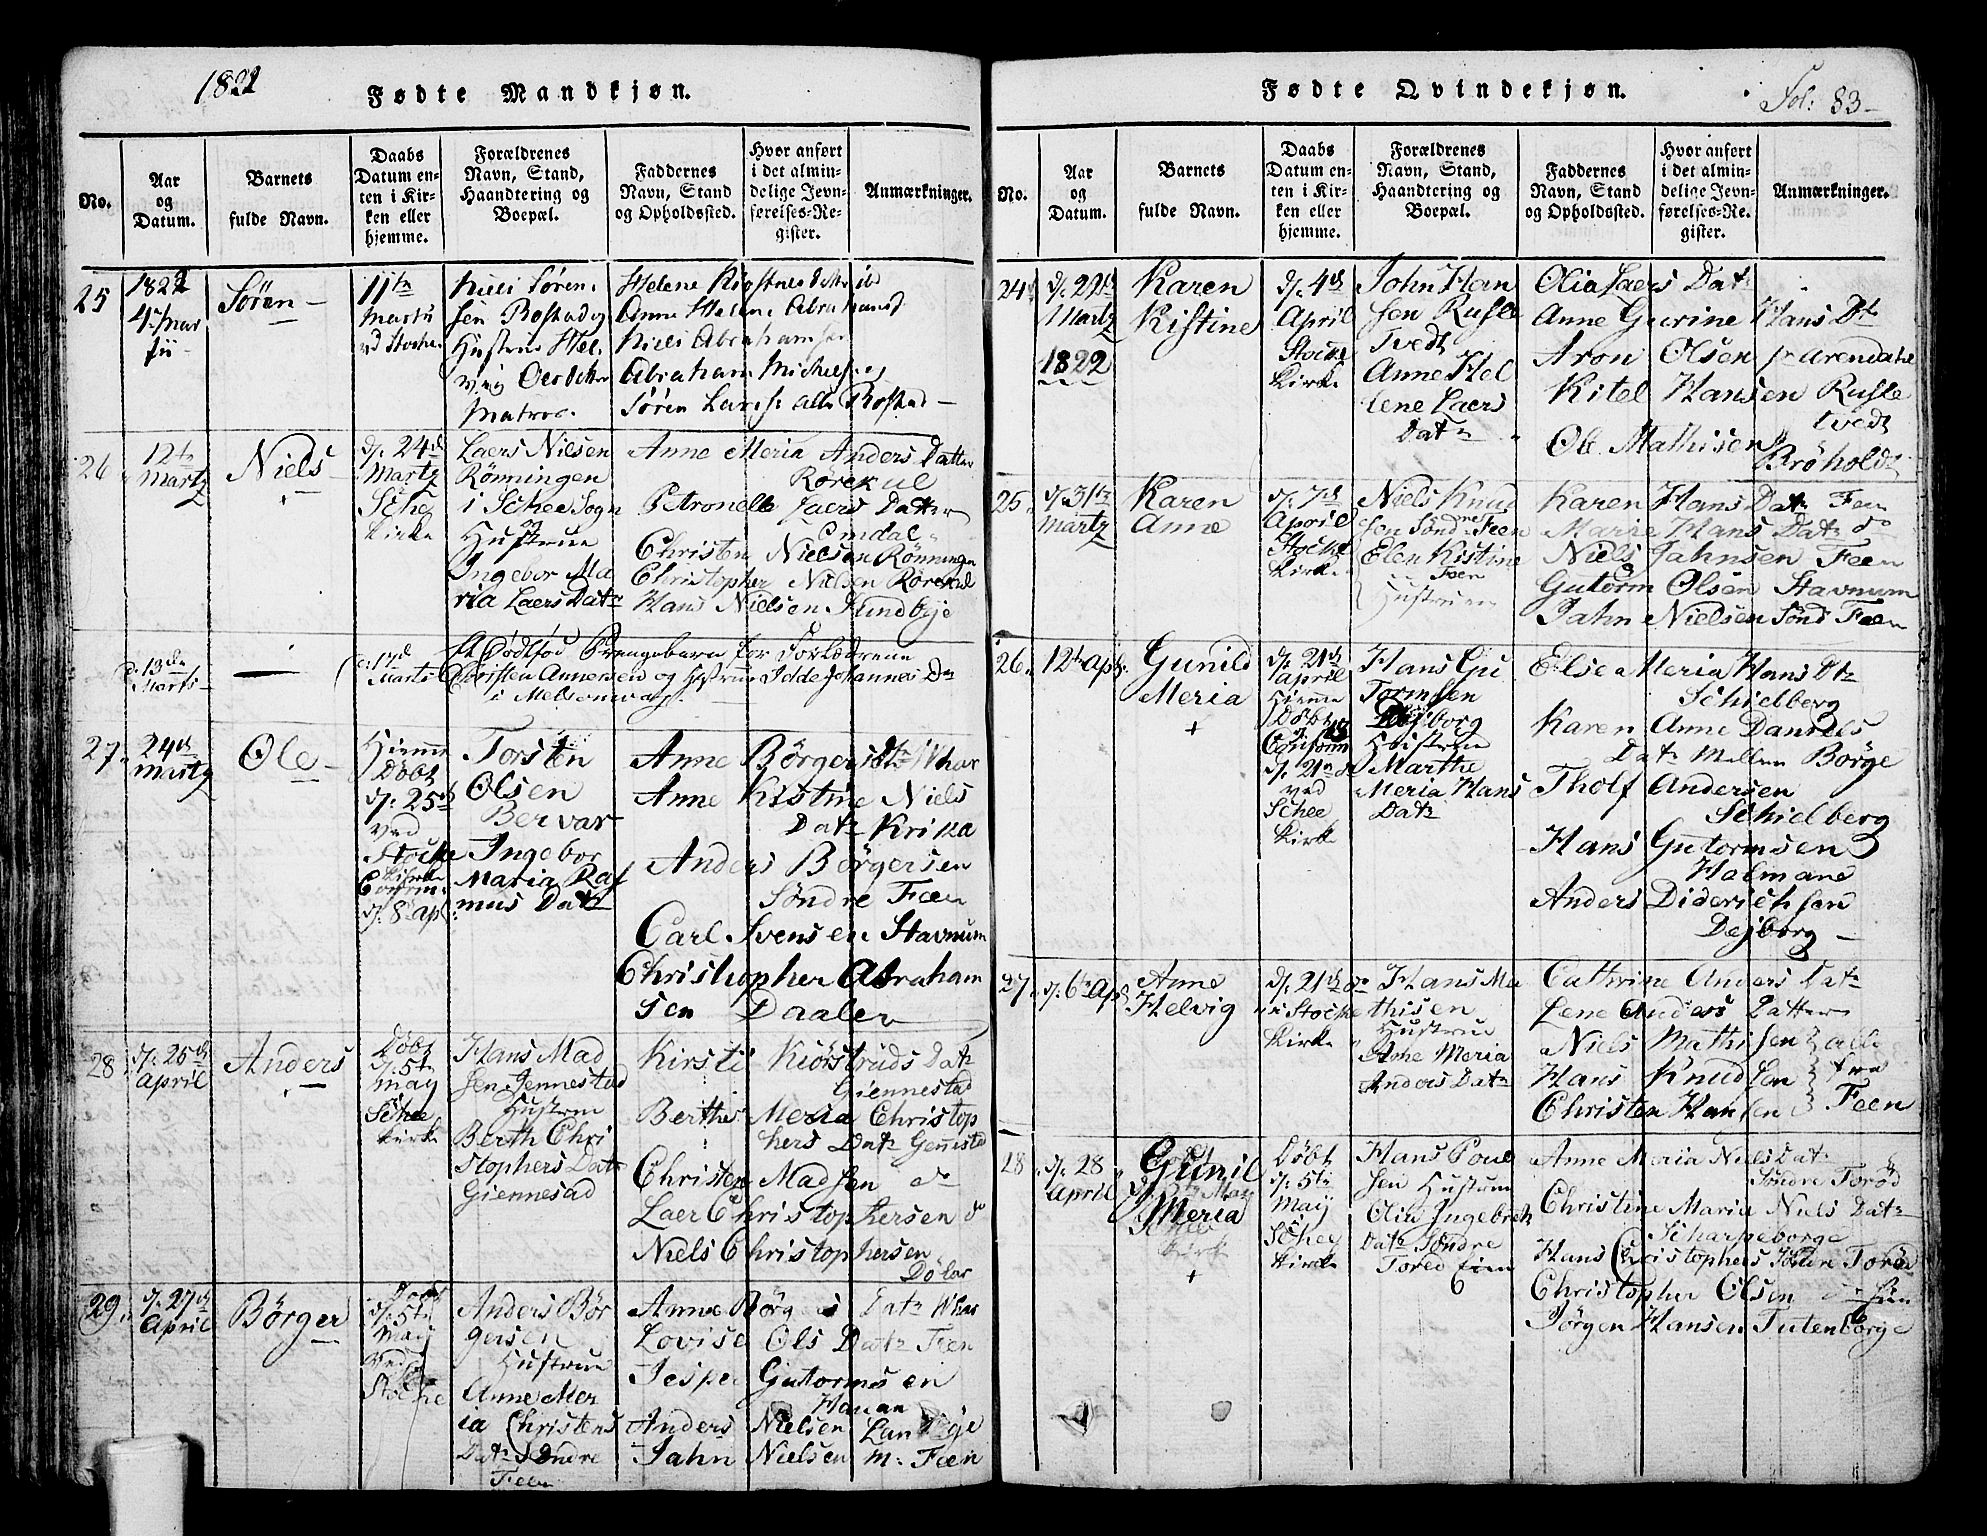 1822
Fødte Mandkjøn.
No.
Aar
og
Datum.
Barnets
fulde Navn.
Daabs
Datum en-
ten i Kir-
ken eller
hjemme.
Forældrenes
Navn, Stand,
Haandtering og
Boepæl.
Faddernes
Navn, Stand
og Opholdssted.
Hvor anført
i det almin-
delige Jevn-
førelses-Re-
gister.
Anmærkninger.
25
1822
4de Mar
tii
Søren
11te
Martii
Niels Søren
sen Bostad og
Hustrue Hel
vig
Matros
Helene
Anne Helene Abrahams
Niels Abrahamsen
Abraham Michelsen
Søren Lars alle Bostad
26
12te
Martz
Niels
+
d: 24d
Martz
Schee
Kirke
Laers Nielsen
Rønningen
i Schee Sogn
Hustrue
Ingebor Ma
ria Laers Datr
Anne Meria Anders Datter
Rørekul
Petronelle Laers Datter
Emdal
Christen Nielsen Rønningen
Christopher Nielsen Rørekul
Hans Nielsen Sundbye
d. 13de
Marts
Et Dødfød Drengebarn for Forældrene
Christen Andersen og Hustrue Idde Johannes Dr
i Melsomvag
27
24d
Martz
Ole
Hiemme
Døbt
d: 25d
ved
Stocke
Kirke
Confirm:
d: 8 apl:
Torsten
Olsen
Bervar
Ingebor
Maria Ras
mus Datr
Anne Børgers Datr Whar
Anne Kistine Niels
Datr Krika
Anders Børgersen
Søndre Feen
Carl Svensen Stavnum
Christopher Abraham
sen Daaler
28
d: 25d
April
Anders
Døbt
d: 5te
May
Schee
Kirke
Hans Mad
sen Jennestad
Hustrue
Berth Chri
stophers Datr
Giennesad
Kirsti Kiøstruds Datr
Giennestad
Berthe Meria Christop
hers Datr Gennstad
Christen Madsen do
Laer Christophersen do
Niels Christophersen
Dølar
29
d: 27d
April
Børger
Døbt
d: 5te
May
ved
Stocke
Anders Bør
gersen
Hustrue
Anne Mer
ia Christens
Datr Søndre
Feen
Anne Børgers Datr Whar
Lovise Ols Datr Feen
Jesper Gutormsen
Hanan
Anders Nielsen
Jahn Nielsen m: Feen
Fødte Qvindekjøn.
Fol: 83
No.
Aar
og
Datum.
Barnets
fulde Navn.
Daabs
Datum en-
ten i Kir-
ken eller
hjemme.
Forældrenes
Navn, Stand,
Haandtering og
Boepæl.
Faddernes
Navn, Stand
og Opholdssted.
Hvor anført
i det almin-
delige Jevn-
førelses-Re-
gister.
Anmærkninger.
24
Martz
1822
Karen
Kistine
d: 4d
April
Stocke
Kirke
John Han
sen Rusle
Tvedt
Anne Hel
lene Laers
Datr
Olia Laers Datr
Anne Gurine Hans Dtr
Aron Olsen Arendahl
Kitel Hansen Rusle
tvedt
Ole Mathisen
Brøholdt
25
d: 31te
Martz
Karen
Anne
d: 7d
April
Stocke
Kirke
Niels Knud
sen Søndre Feen
Elen Kistine
Feen
Hustrue
Karen Hans Datr Feen
Marie Hans Datr do
Niels Jahnsen Feen
Gutorm Olsen Stavnum
Jahn Nielsen Sønd Feen
26
12te Apl:
Gunild
Meria
+
d: 21d
April
Hiemme
Døbt
Confirm
d: 21d
ved
Schee
Kirke
Hans Gu
Tormsen
Dejborg
Hustrue
Marthe
Meria Hans
Datr
Else Meria Hans Dtr
Schielberg
Karen Anne Daniels
Datr Mellem Børge
Tholf Andersen
Schielberg
Hans Gutormsen
Halmane
Anders Diderichsen
Dejborg
27
d: 6te Apl
Anne
Helvig
d: 21d
i Stocke
Kirke
Hans Ma
thisen
Hustrue
Ane Meria
Anders Datr
Cathrine Anders Datr
Lene Anders Datter
Niels Mathisen alle
Hans Knudsen fra
Christen Hansen Feen
28
d: 28
April
Gunil
Meria
+
Døbt
d: 5te
May
Schee
Kirke
Hans Poul
sen Hustrue
Olia Ingebreth
Datr Søndre
Tored Eien
Anne Meria Niels Datr
Søndre Torød
Christine Maria Niels Datr
Scharpeborge
Hans Christophers Søndre Torød
Christopher Olsen
Jørgen Hansen Tutenborge